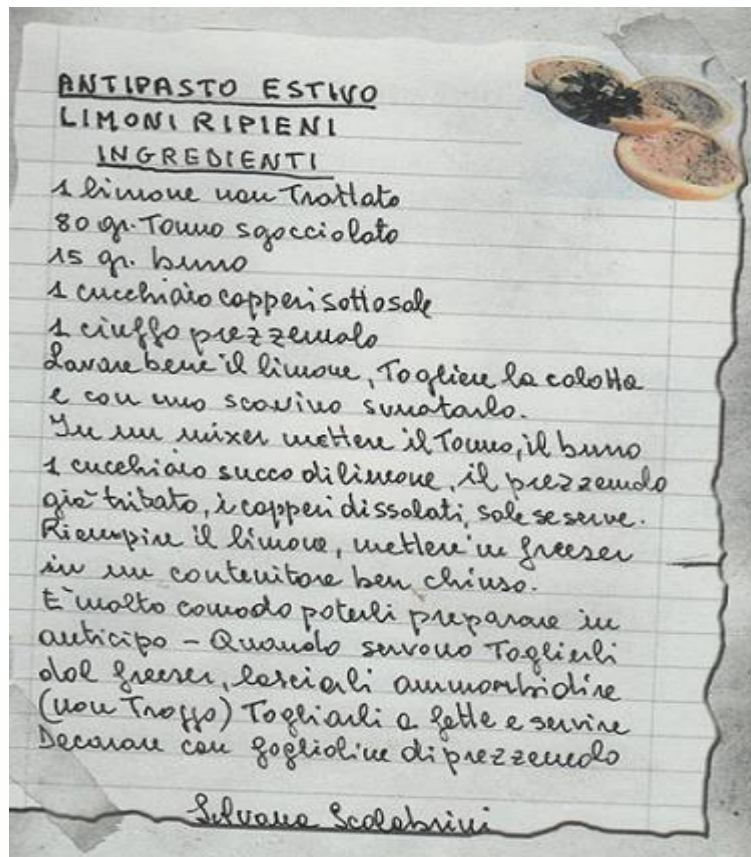 ANTIPASTO ESTIVO
LIMONI RIPIENI
INGREDIENTI
1 limone non Trattato
80 gr. Tonno sgocciolato
15 gr. burro
1 cucchiaio capperi sottosale
1 ciuffo prezzemolo
Lavare bene il limone, Togliere la calotta
e con uno scavino svuotarlo.
In un mixer mettere il Tonno, il burro
1 cucchiaio succo di limone, il prezzemolo
già tritato, i capperi dissalati, sale se serve.
Riempire il limone, mettere in freezer
in un contenitore ben chiuso.
E' molto comodo poterli preparare in
anticipo - Quando servono Toglierli
dal freezer, lasciarli ammorbidire
(non Troppo) Tagliarli a fette e servire
Decorare con foglioline di prezzemolo
Silvana Scalabrini